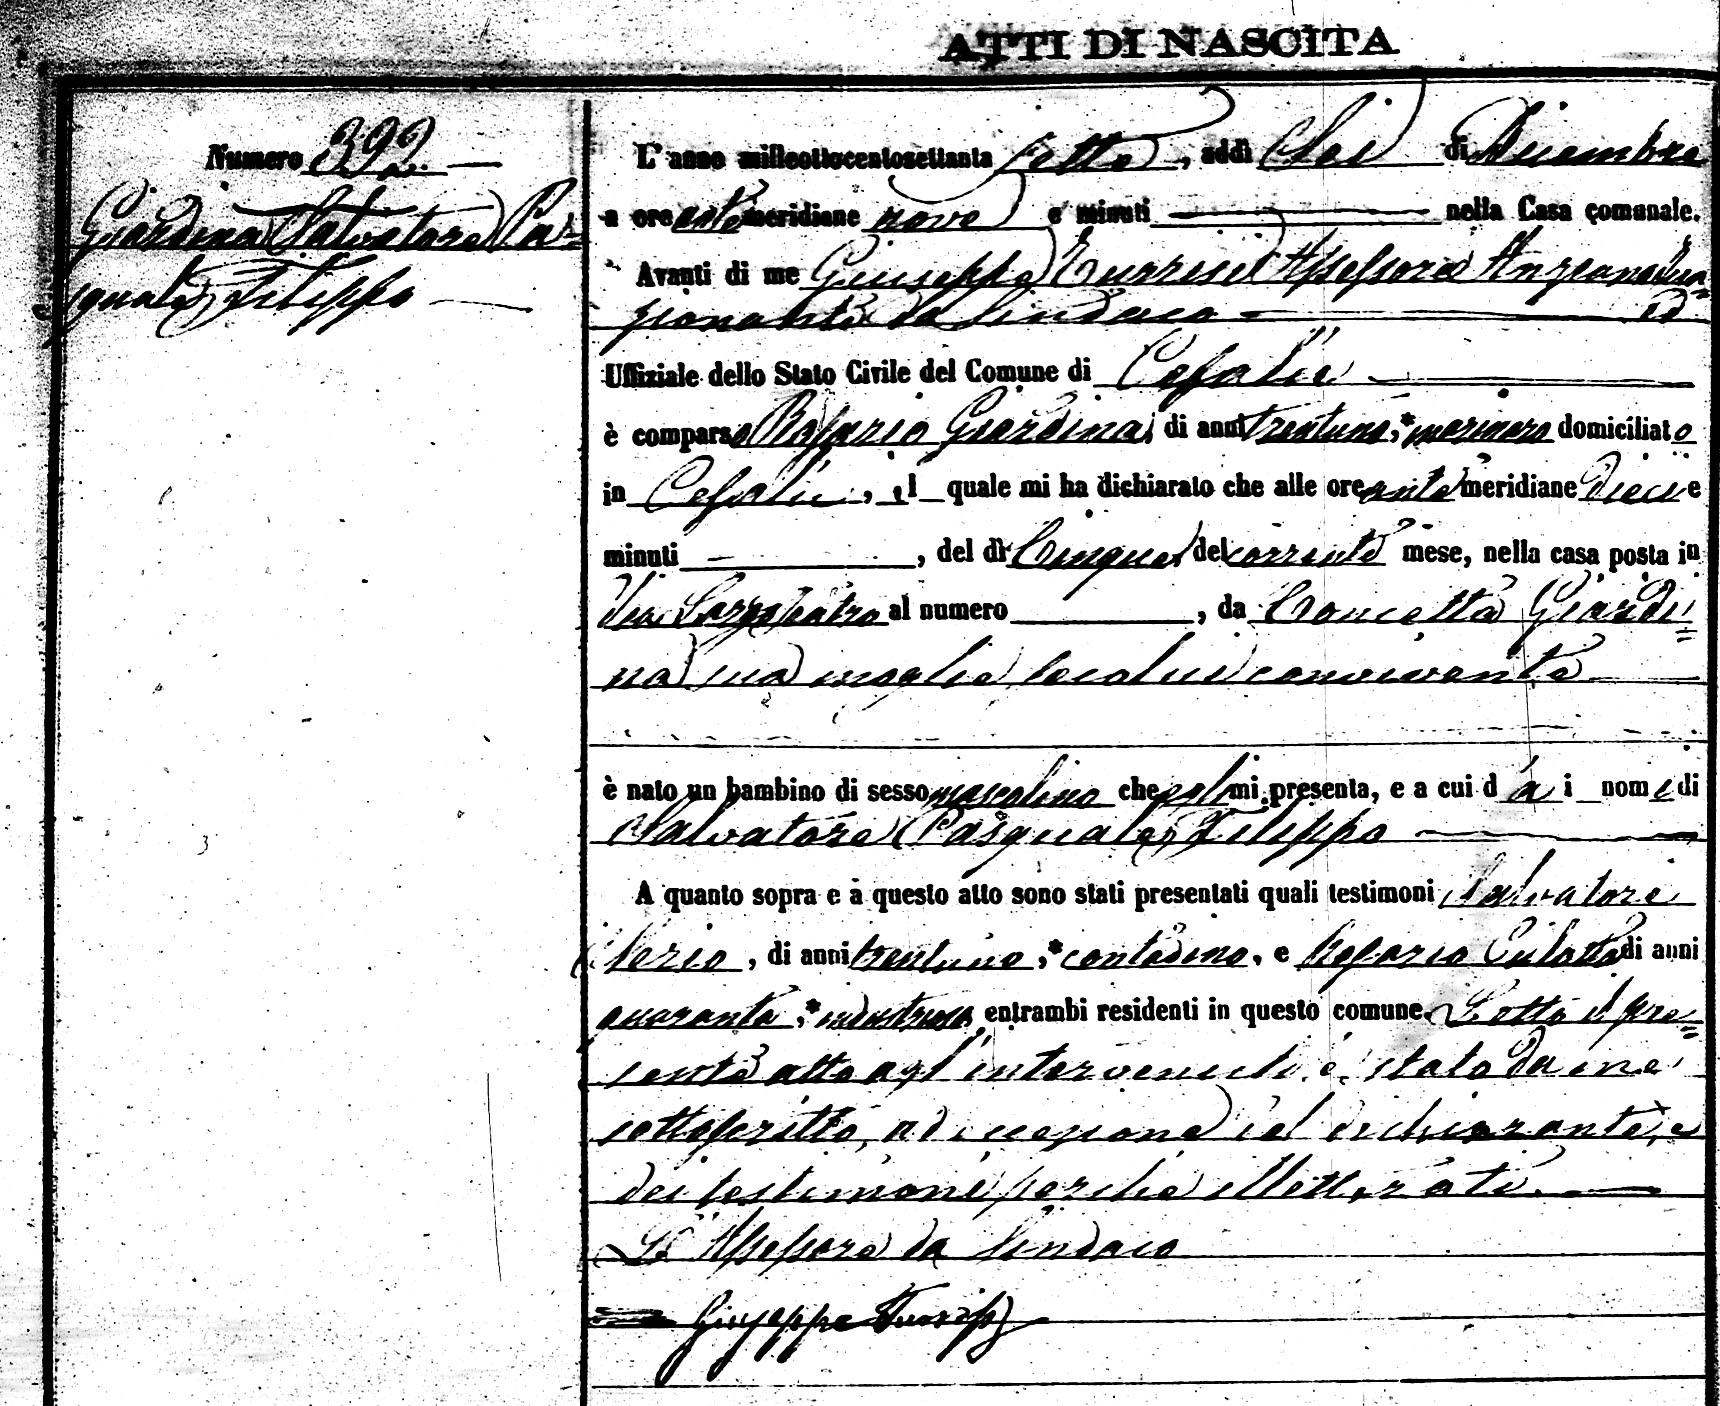 ATTI DI NASCITA
Numero 392.
Giardina Salvatore Pa=
squale Filippo
L'anno milleottocentosettanta sette, addì Sei di Dicembre
a ore antemeridiane nove e minuti nella Casa comunale.
Avanti di me Giuseppe Assessore Anziano fun=
zionante da Sindaco ed
Uffiziale dello Stato Civile del Comune di Cefalù
è comparso Rosario Giardina, di anni trentuno, marinaro domiciliato
in Cefalù, il quale mi ha dichiarato che alle ore antemeridiane dieci e
minuti , del dì Cinque del corrente mese, nella casa posta in
via Largo Teatro al numero , da Concetta Giardi=
na sua moglie seco lui convivente
è nato un bambino di sesso mascolino che egli mi presenta, e a cui dà i nomi di
Salvatore Pasquale Filippo
A quanto sopra e a questo atto sono stati presentati quali testimoni Salvatore
, di anni trentuno, contadino, e Rosario di anni
quaranta, industrioso, entrambi residenti in questo comune. Letto il pre=
sente atto agl'intervenuti è stato da me
sottoscritto, ad eccezione del dichiarante, e
dei testimoni perché illetterati.
L'Assessore da Sindaco
Giuseppe